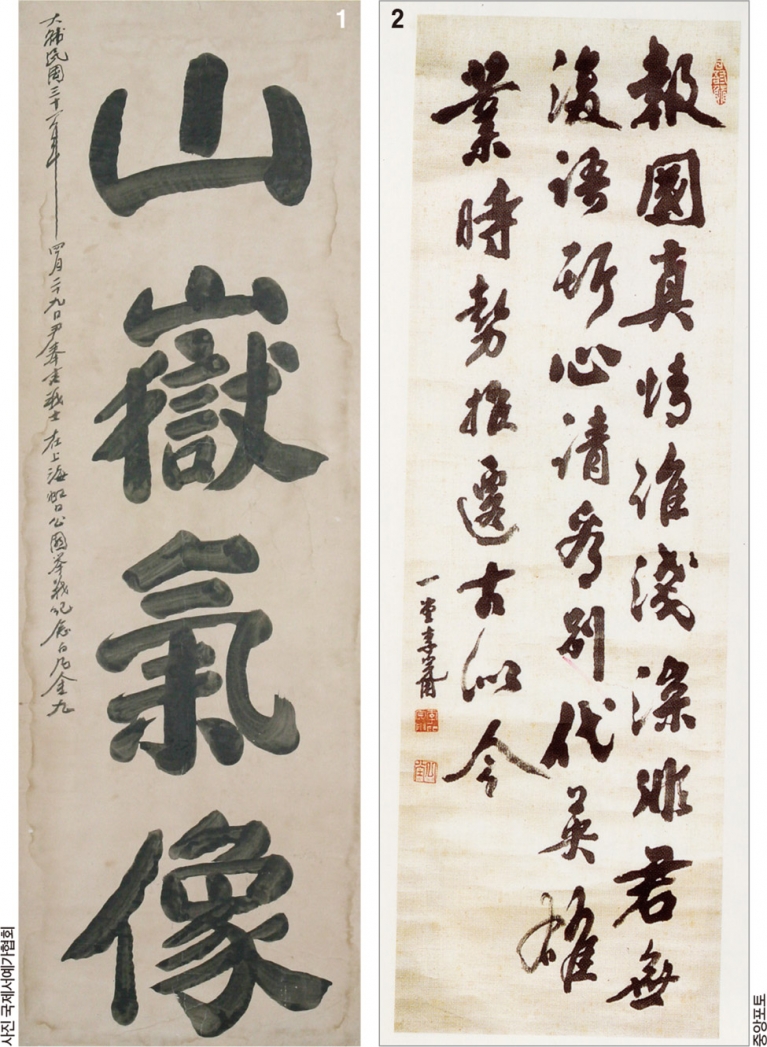 1
山嶽氣像
大韓民國三十一年四月二十九日尹奉吉義士在上海虹口公園擧義紀念日白凡金九
사진 국제서예가협회
2
報國真情誰淺深非君無
復語所心請看別代英雄
業時勢推遷古似今
一堂李完用
중앙포토